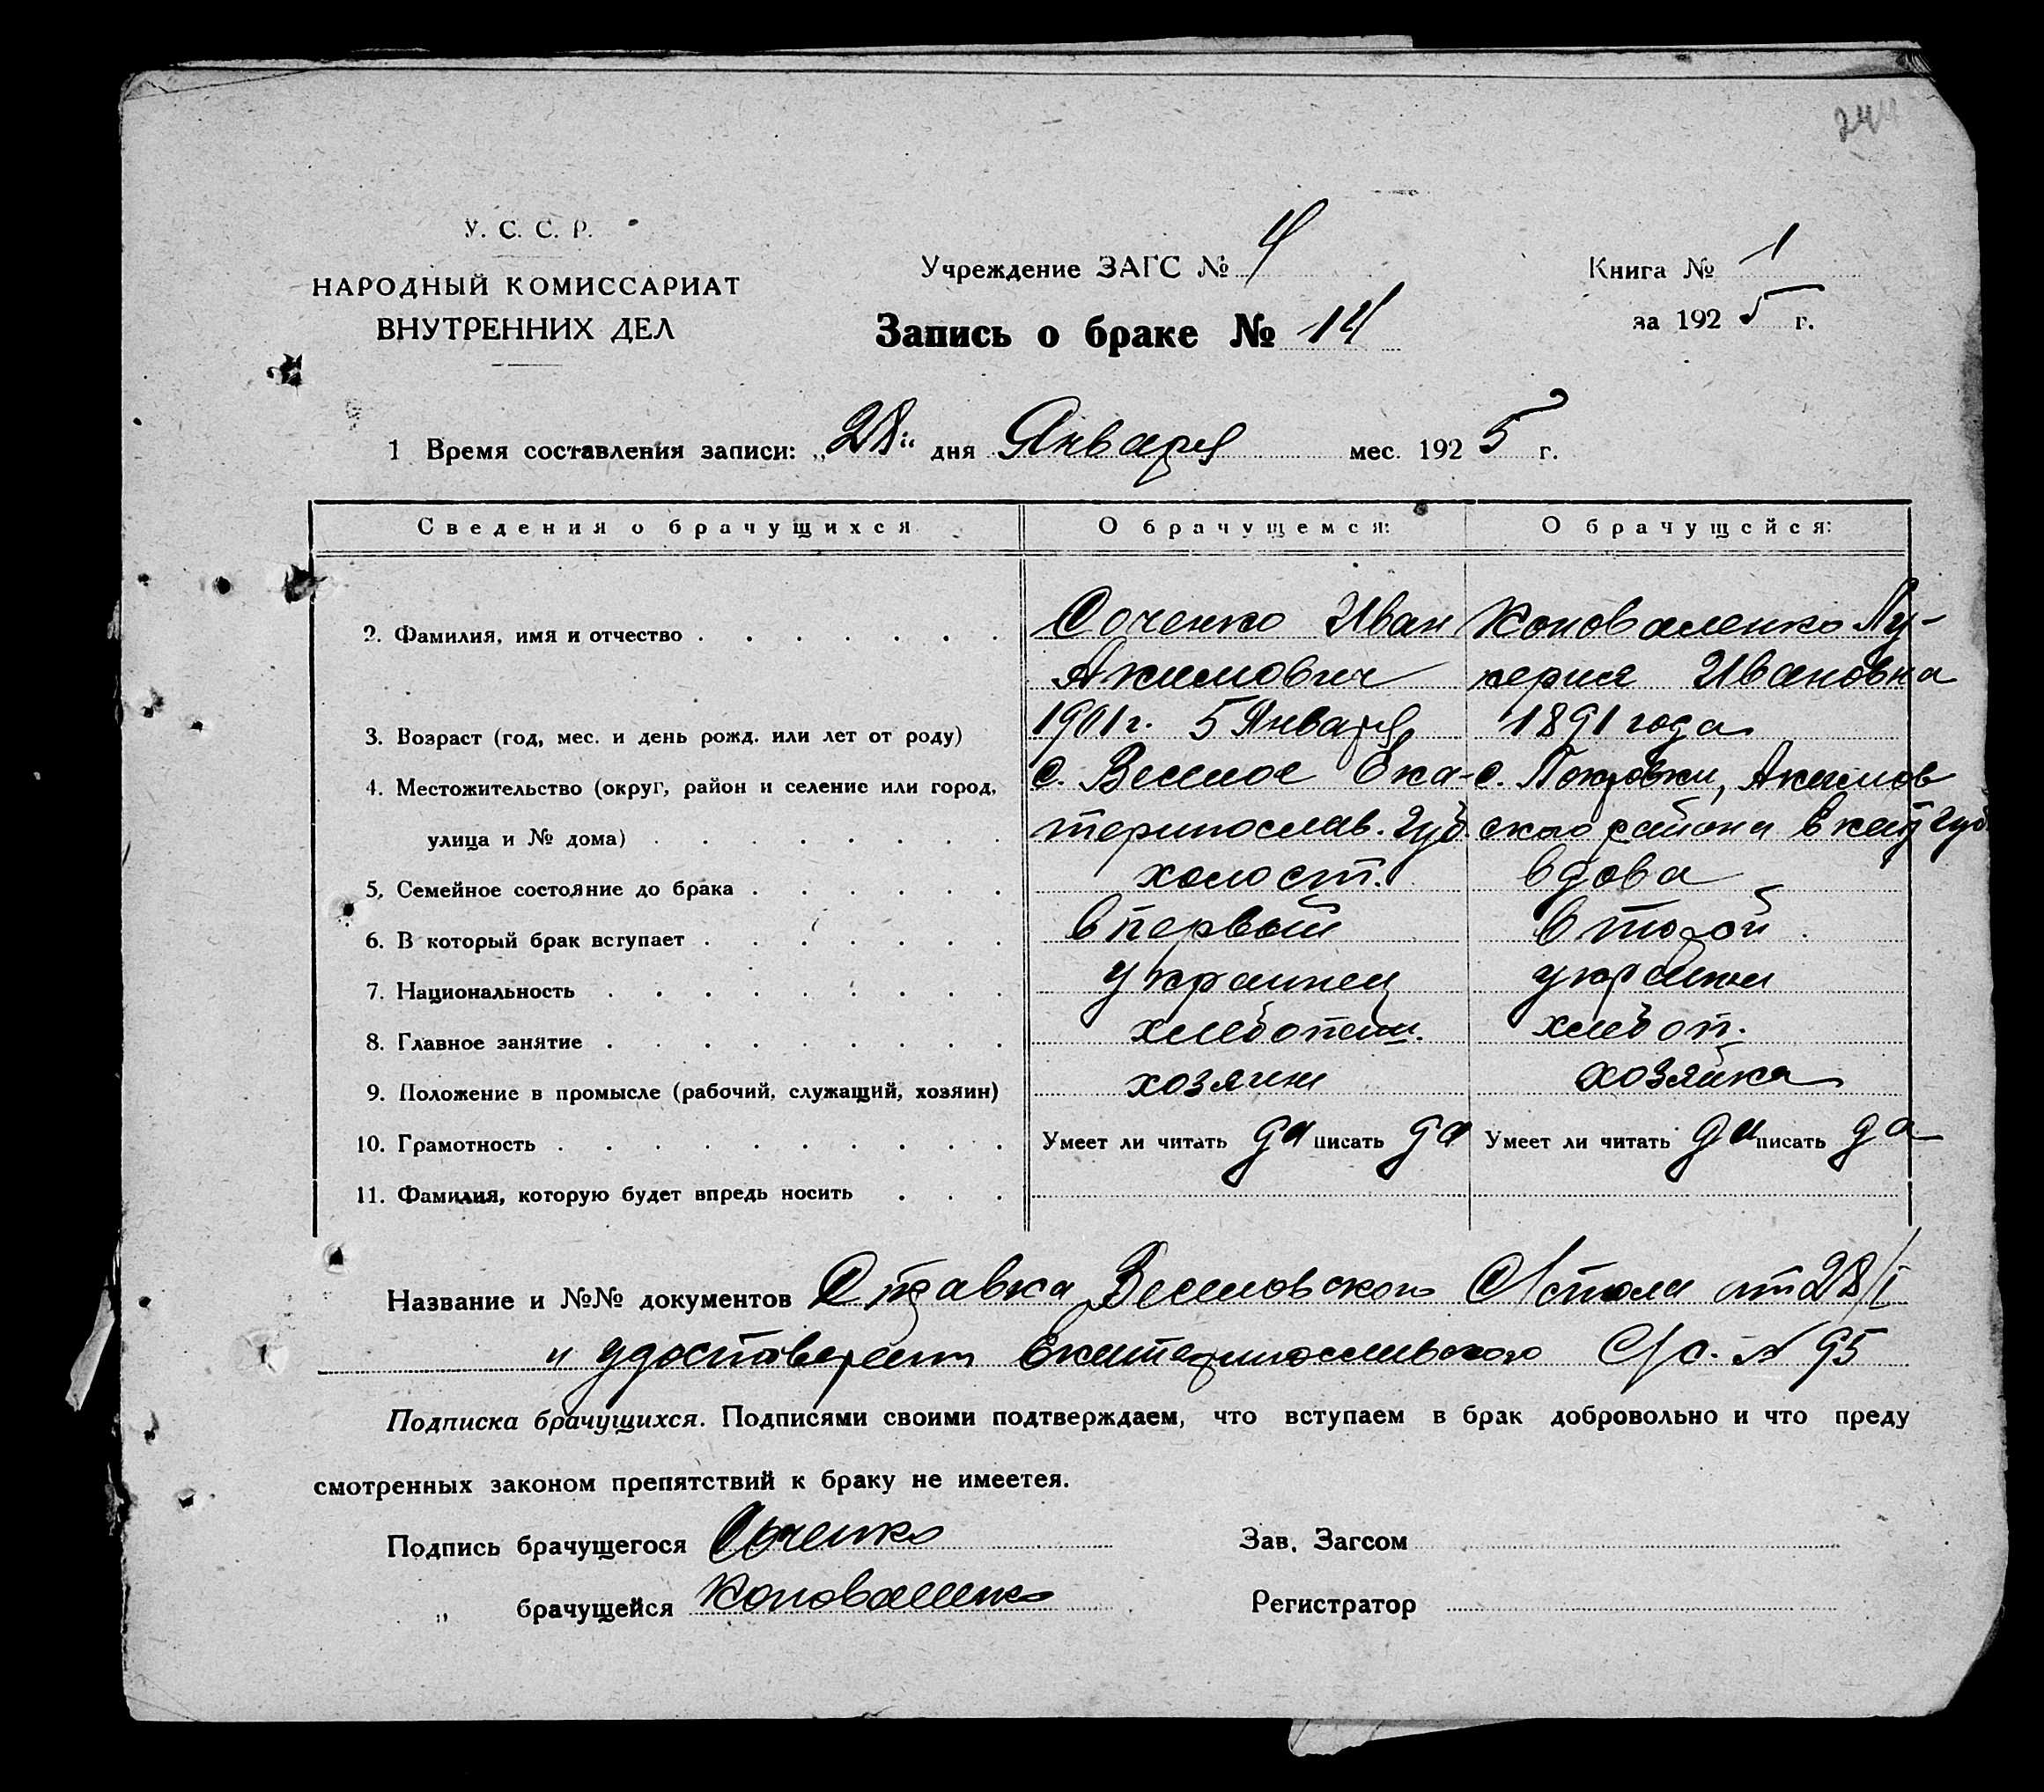 244
У. С. С. Р.
НАРОДНЫЙ КОМИССАРИАТ
ВНУТРЕННИХ ДЕЛ
Учреждение ЗАГС № 4
Запись о браке № 14
Книга № 1
за 1925 г.
1 Время составления записи: „28" дня Января мес. 1925 г.
Сведения о брачущихся О брачущемся: О брачущейся:
2. Фамилия, имя и отчество . . . . . . . Соченко Иван Коноваленко Лу-
Акимович керия Ивановна
3. Возраст (год, мес. и день рожд. или лет от роду) 1901 г. 5 Января 1891 года
4. Местожительство (округ, район и селение или город, с. Веселое Ека- с. Покровки, Акимов
улица и № дома) . . . . . . . . теринослав. губ. ского района Екат губ.
5. Семейное состояние до брака . . . . . . холост. вдова
6. В который брак вступает . . . . . . . впервый второй
7. Национальность . . . . . . . . . украинец украинка
8. Главное занятие . . . . . . . . . хлебопаш. хлебоп.
9. Положение в промысле (рабочий, служащий, хозяин) хозяин хозяйка
10. Грамотность . . . . . . . . . . Умеет ли читать да писать да Умеет ли читать да писать да
11. Фамилия, которую будет впредь носить . . .
Название и №№ документов Справка Веселовского С/стола от 28/I
и удостоверен Екатеринославского С/с. № 95
Подписка брачущихся. Подписями своими подтверждаем, что вступаем в брак добровольно и что преду
смотренных законом препятствий к браку не имеетея.
Подпись брачущегося Соченко Зав. Загсом
„ брачущейся Коноваленко Регистратор